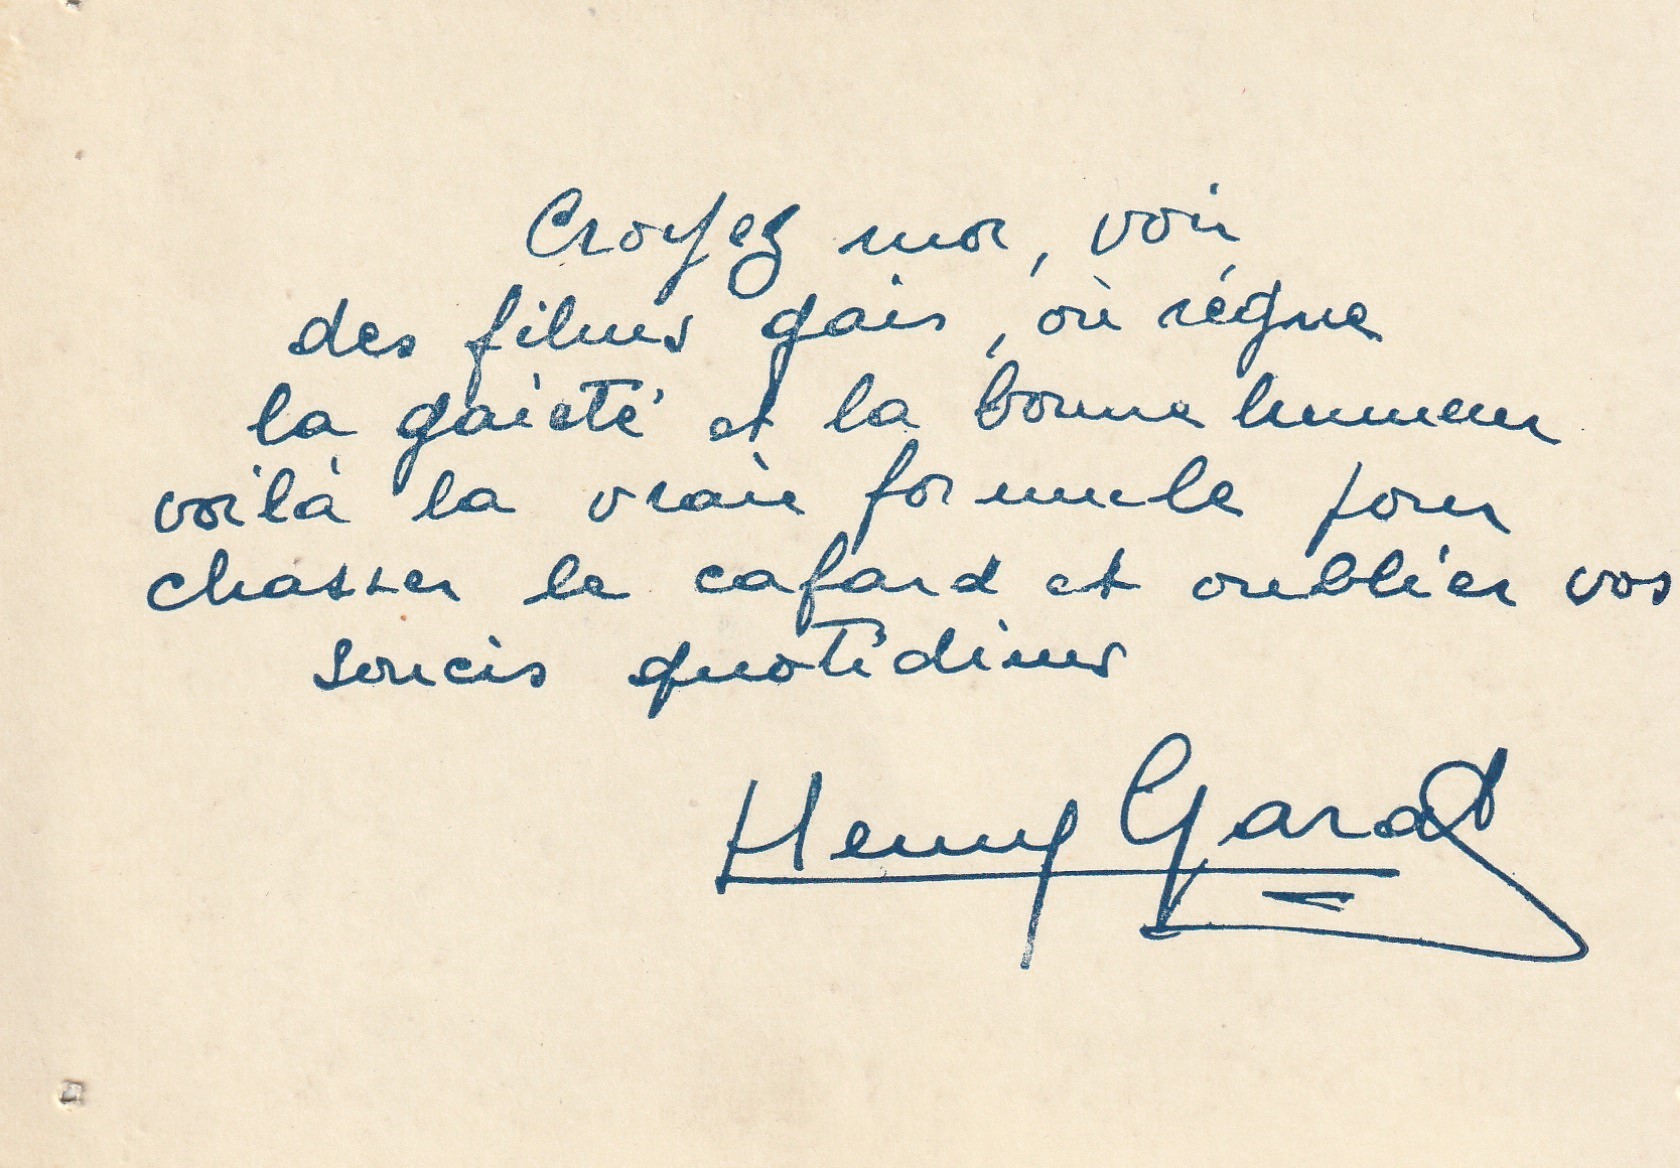 Croyez moi, voir
des films gais, où règne
la gaieté et la bonne humeur
voilà la vraie formule pour
chasser le cafard et oublier vos
soucis quotidiens
Henry Garat